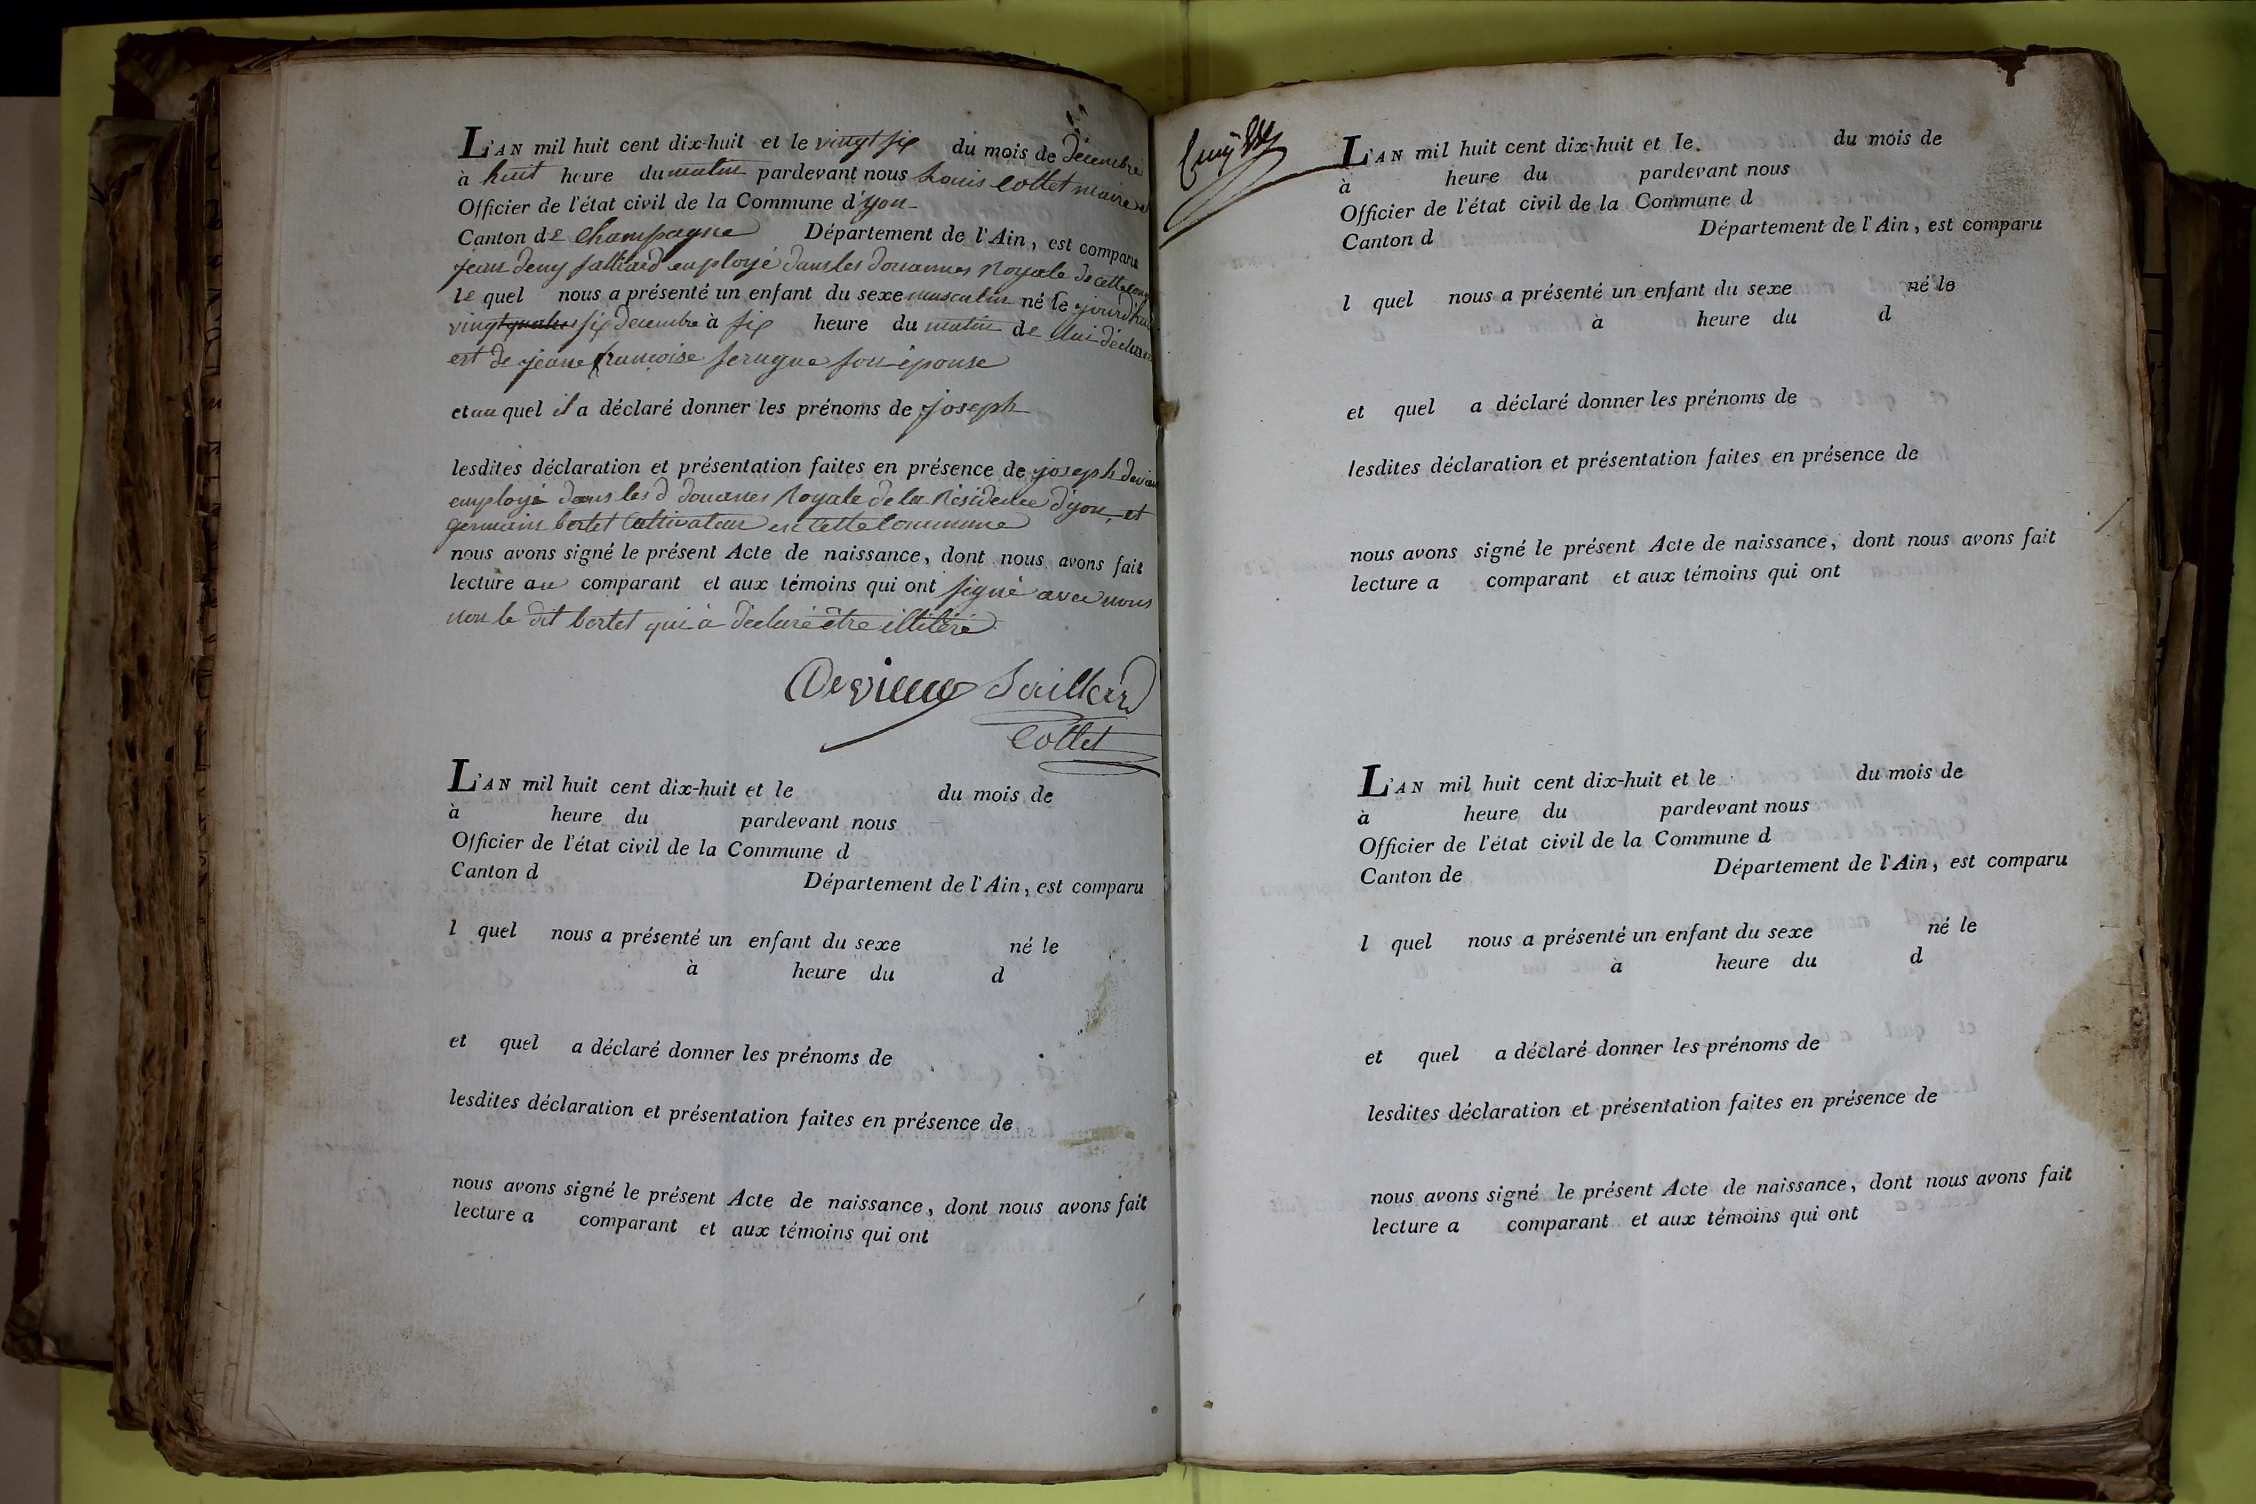 L'AN mil huit cent dix-huit et le vingt six du mois de décembre
à huit heure du matin pardevant nous Louis Collet maire
Officier de l'état civil de la Commune d'yon
Canton de Champagne Département de l'Ain, est comparu
jean deny Salliard employé dans les douannes Royale de cette
le quel nous a présenté un enfant du sexe masculin né le jourdhui
vingt quatre six decembre à six heure du matin de lui déclarant
est de jeane françoise son épouse
et au quel il a déclaré donner les prénoms de joseph
lesdites déclaration et présentation faites en présence de joseph
employé dans les d douanes Royale de la Résidence d'yon, et
germain bertet Cultivateur en cette Commune
nous avons signé le présent Acte de naissance, dont nous avons fait
lecture au comparant et aux témoins qui ont signé avec nous
non le dit bertet qui à déclaré être illitéré
Saillard
Collet
L'AN mil huit cent dix-huit et le du mois de
à heure du pardevant nous
Officier de l'état civil de la Commune d
Canton d Département de l'Ain, est comparu
l quel nous a présenté un enfant du sexe né le
à heure du d
et quel a déclaré donner les prénoms de
lesdites déclaration et présentation faites en présence de
nous avons signé le présent Acte de naissance, dont nous avons fait
lecture a comparant et aux témoins qui ont
L'AN mil huit cent dix-huit et le. du mois de
à heure du pardevant nous
Officier de l'état civil de la Commune d
Canton d Département de l'Ain, est comparu
l quel nous a présenté un enfant du sexe né le
à heure du d
et quel a déclaré donner les prénoms de
lesdites déclaration et présentation faites en présence de
nous avons signé le présent Acte de naissance, dont nous avons fait
lecture a comparant et aux témoins qui ont
L'AN mil huit cent dix-huit et le du mois de
à heure du pardevant nous
Officier de l'état civil de la Commune d
Canton de Département de l'Ain, est comparu
l quel nous a présenté un enfant du sexe né le
à heure du d
et quel a déclaré donner les prénoms de
lesdites déclaration et présentation faites en présence de
nous avons signé le présent Acte de naissance, dont nous avons fait
lecture a comparant et aux témoins qui ont